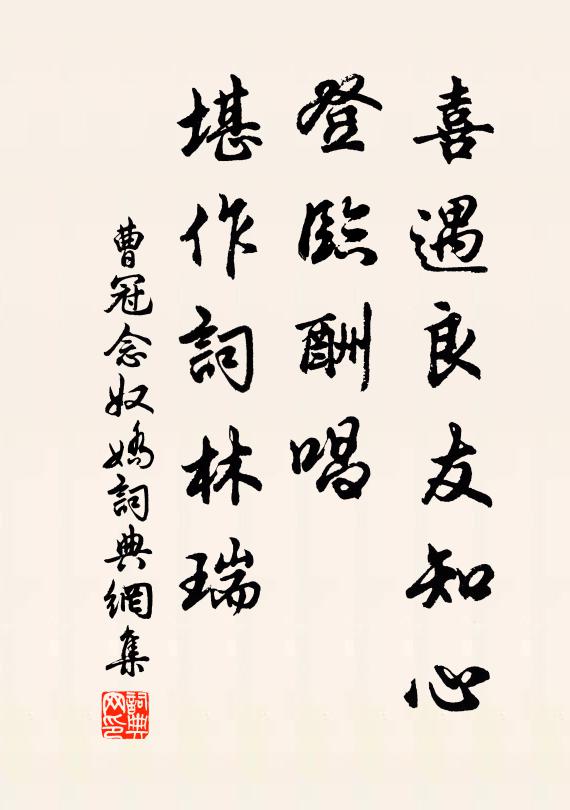 喜遇良友知心
登臨酬唱
堪作詞林瑞
曹冠念奴嬌詞典網集
詞典网印